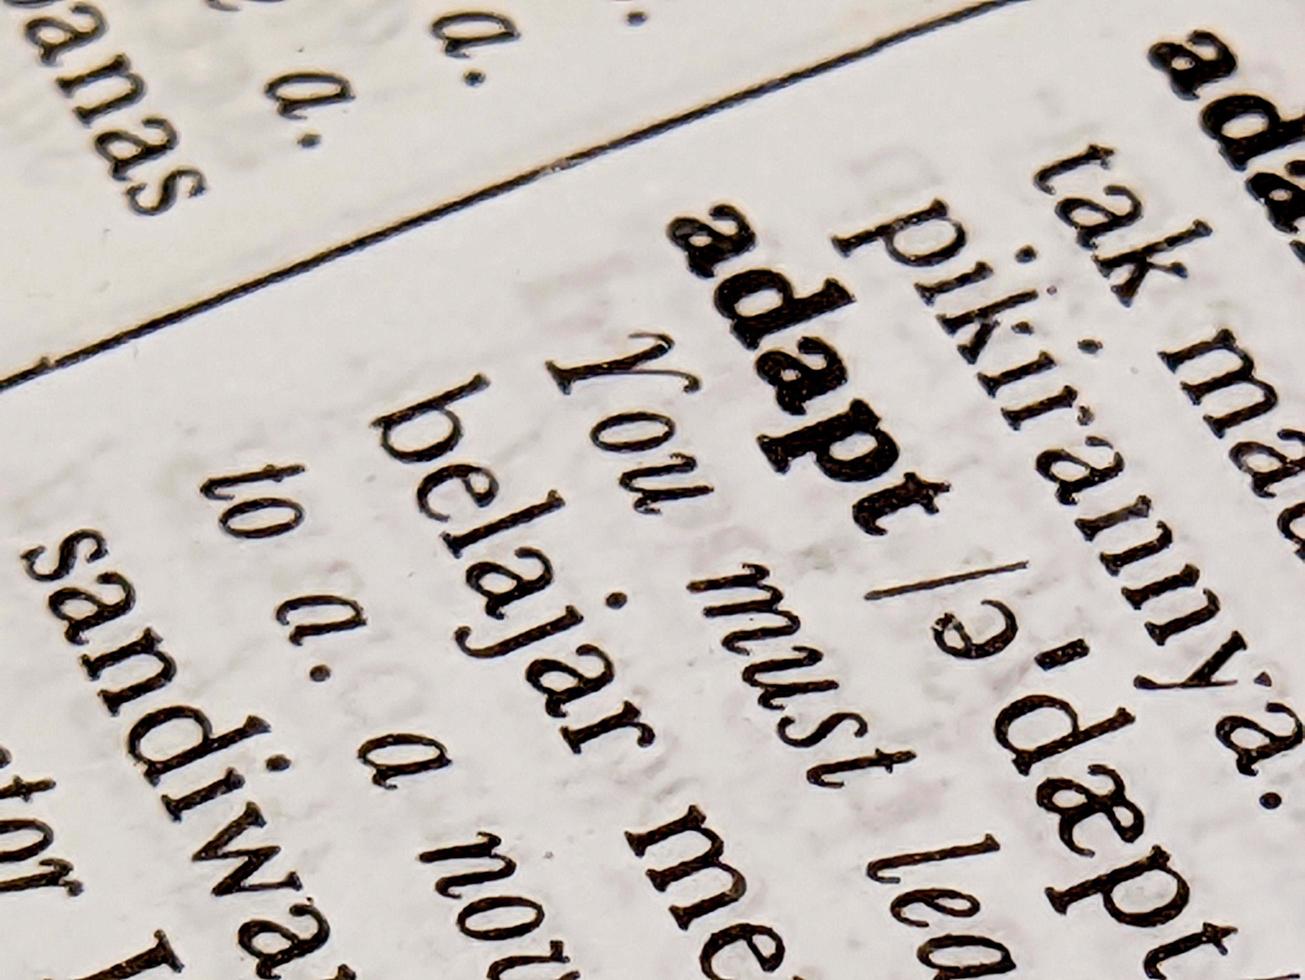 a.
a.
anas
ada
tak ma
pikirannya.
adapt /ə'dæpt
You must lea
belajar me
to a. a nov
sandiwa
tor